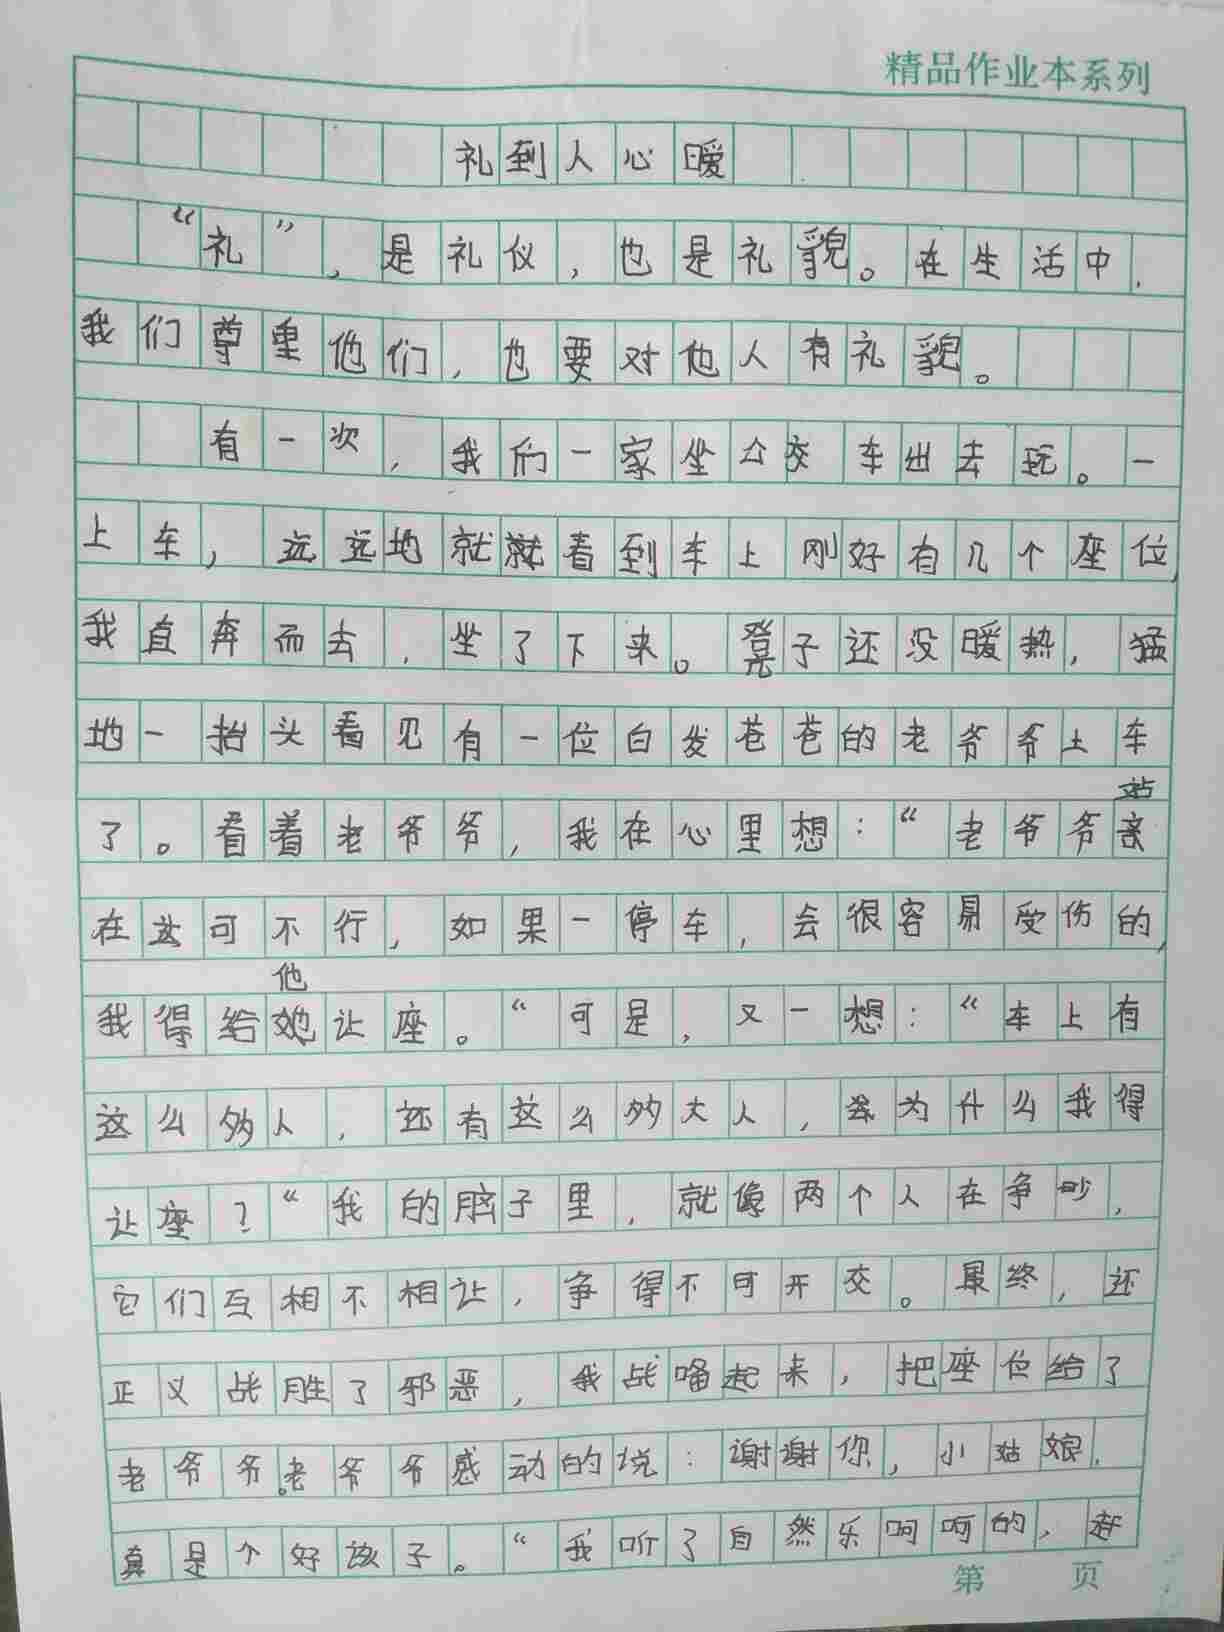 精品作业本系列
礼到人心暖
“礼”，是礼仪，也是礼貌。在生活中，
我们尊重他们，也要对他人有礼貌。
有一次，我们一家坐公交车出去玩。一
上车，远远地就就看到车上刚好有几个座位，
我直奔而去，坐了下来。凳子还没暖热，猛
地一抬头看见有一位白发苍苍的老爷爷上车
站
了。看着老爷爷，我在心里想：“老爷爷
在这可不行，如果一停车，会很容易受伤的，
他
我得给她让座。“可是，又一想：“车上有
这么多人，还有这么多大人，为什么我得
让座？“我的脑子里，就像两个人在争吵，
它们互相不相让，争得不可开交。最终，还
正义战胜了邪恶，我战起来，把座位给了
老爷爷。老爷爷感动的说：谢谢你，小姑娘，
真是个好该子。“我听了自然乐呵呵的，赶
第 页